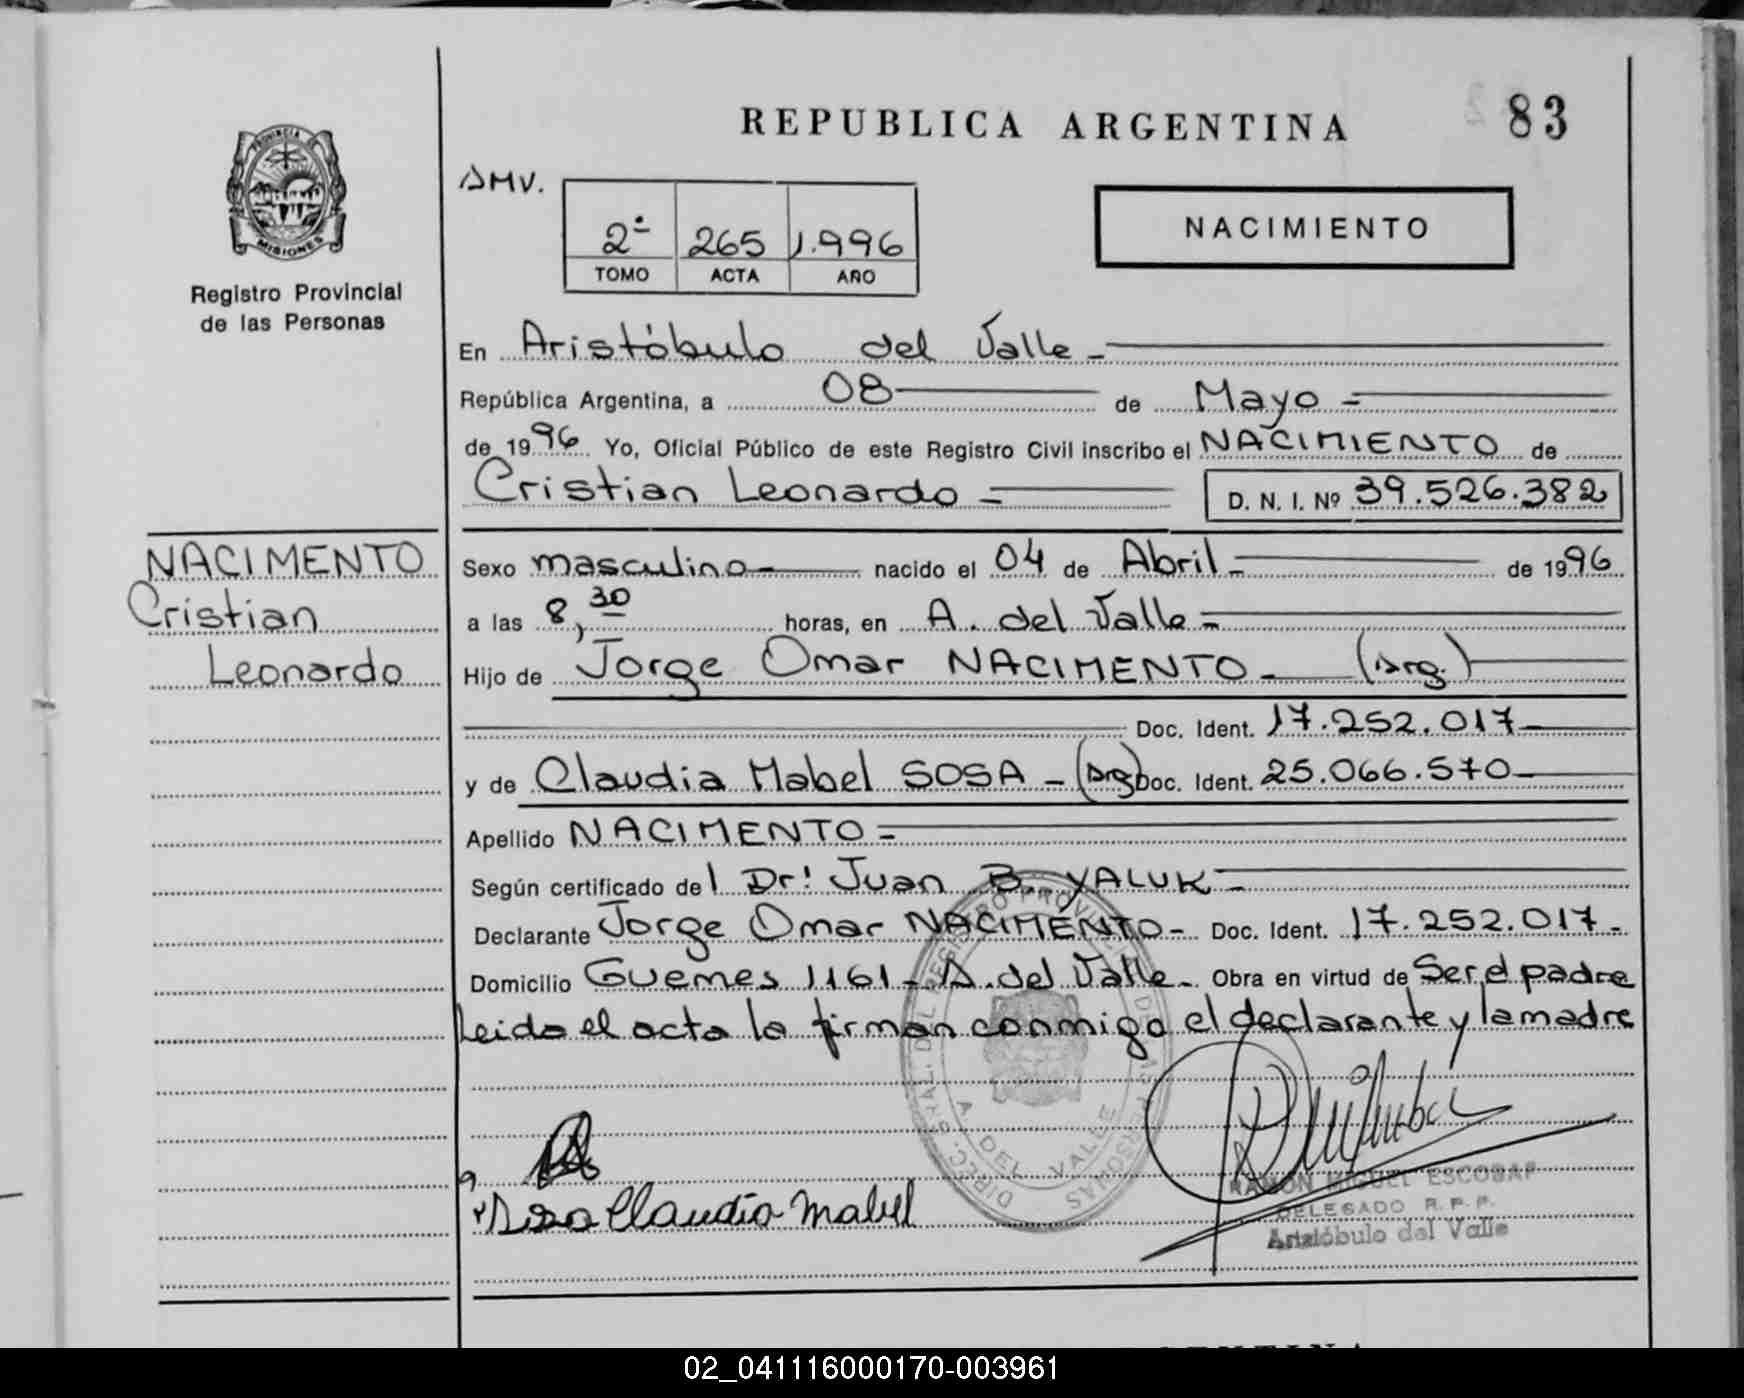 REPUBLICA ARGENTINA
83
PROVINCIA DE
MISIONES
Registro Provincial
de las Personas
AMV.
2ª 265 1.996
TOMO ACTA AÑO
NACIMIENTO
En Aristóbulo del Valle -
República Argentina, a 08 de Mayo =
de 1996 Yo, Oficial Público de este Registro Civil inscribo el NACIMIENTO de
Cristian Leonardo = D. N. I. Nº 39.526.382
NACIMENTO
Cristian
Leonardo
Sexo masculino nacido el 04 de Abril - de 1996
a las 8,30 horas, en A. del Valle =
Hijo de Jorge Omar NACIMENTO - (Arg.)
Doc. Ident. 17.252.017
y de Claudia Mabel SOSA - (Arg) Doc. Ident. 25.066.570
Apellido NACIMENTO =
Según certificado del Dr! Juan B. YALUK =
Declarante Jorge Omar NACIMENTO - Doc. Ident. 17.252.017.
Domicilio Guemes 1161 - A. del Valle - Obra en virtud de Ser el padre
Leida el acta la firman conmigo el declarante y la madre
DIREC. GRAL. DEL REGISTRO PROVINCIAL DE LAS PERSONAS
A. DEL VALLE
Sosa Claudia Mabel
RAMON MIGUEL ESCOBAR
DELEGADO R.P.P.
Aristóbulo del Valle
02_041116000170-003961